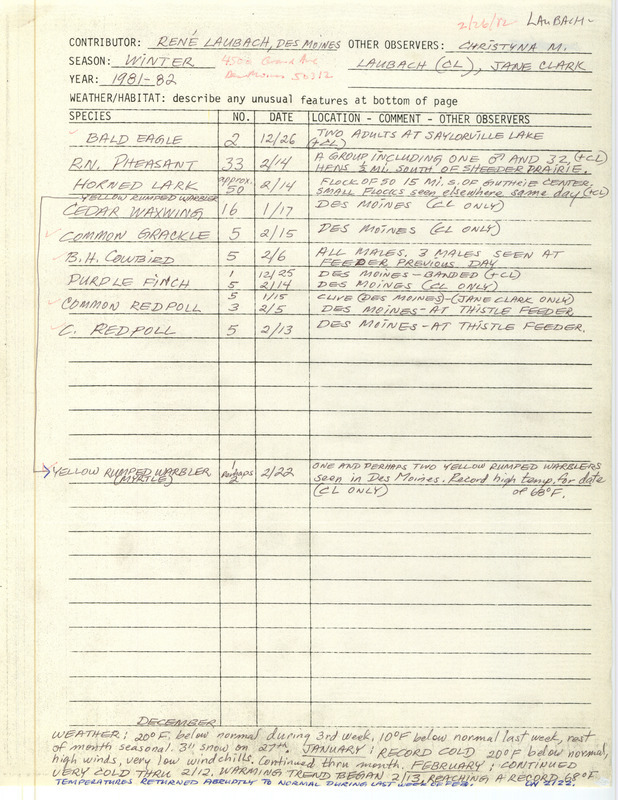 2/26/82 LAUBACH-
CONTRIBUTOR: RENÉ LAUBACH, DES MOINES OTHER OBSERVERS: CHRISTYNA M.
SEASON: WINTER 4500 Grand Ave LAUBACH (CL), JANE CLARK
Des Moines 50312
YEAR: 1981-82
WEATHER/HABITAT: describe any unusual features at bottom of page
SPECIES NO. DATE LOCATION - COMMENT - OTHER OBSERVERS
BALD EAGLE 2 12/26 TWO ADULTS AT SAYLORVILLE LAKE
(+CL)
R.N. PHEASANT 33 2/14 A GROUP INCLUDING ONE ♂ AND 32 (+CL)
HENS ½ MI. SOUTH OF SHEEDER PRAIRIE.
HORNED LARK approx. 50 2/14 FLOCK OF 50 15 MI. S. OF GUTHRIE CENTER,
SMALL FLOCKS seen elsewhere same day (+CL)
YELLOW RUMPED WARBLER
CEDAR WAXWING 16 1/17 DES MOINES (CL ONLY)
COMMON GRACKLE 5 2/15 DES MOINES (CL ONLY)
B.H. COWBIRD 5 2/6 ALL MALES. 3 MALES SEEN AT
FEEDER PREVIOUS DAY
PURPLE FINCH 1 12/25 DES MOINES-BANDED (+CL)
5 2/14 DES MOINES (CL ONLY)
5 1/15 CLIVE (DES MOINES)-(JANE CLARK ONLY)
COMMON REDPOLL 3 2/5 DES MOINES-AT THISTLE FEEDER
C. REDPOLL 5 2/13 DES MOINES-AT THISTLE FEEDER.
YELLOW RUMPED WARBLER 1 perhaps 2 2/22 ONE AND PERHAPS TWO YELLOW RUMPED WARBLERS
(MYRTLE) seen in Des Moines. Record high temp. for date
(CL ONLY) of 68°F.
DECEMBER
WEATHER: 20°F. below normal during 3rd week. 10°F below normal last week, rest
of month seasonal. 3" snow on 27th. JANUARY: RECORD COLD 20°F below normal,
high winds, very low windchills. Continued thru month. FEBRUARY: CONTINUED
VERY COLD THRU 2/12. WARMING TREND BEGAN 2/13, REACHING A RECORD 68°F
TEMPERATURES RETURNED ABRUPTLY TO NORMAL DURING LAST WEEK OF FEB. ON 2/22.